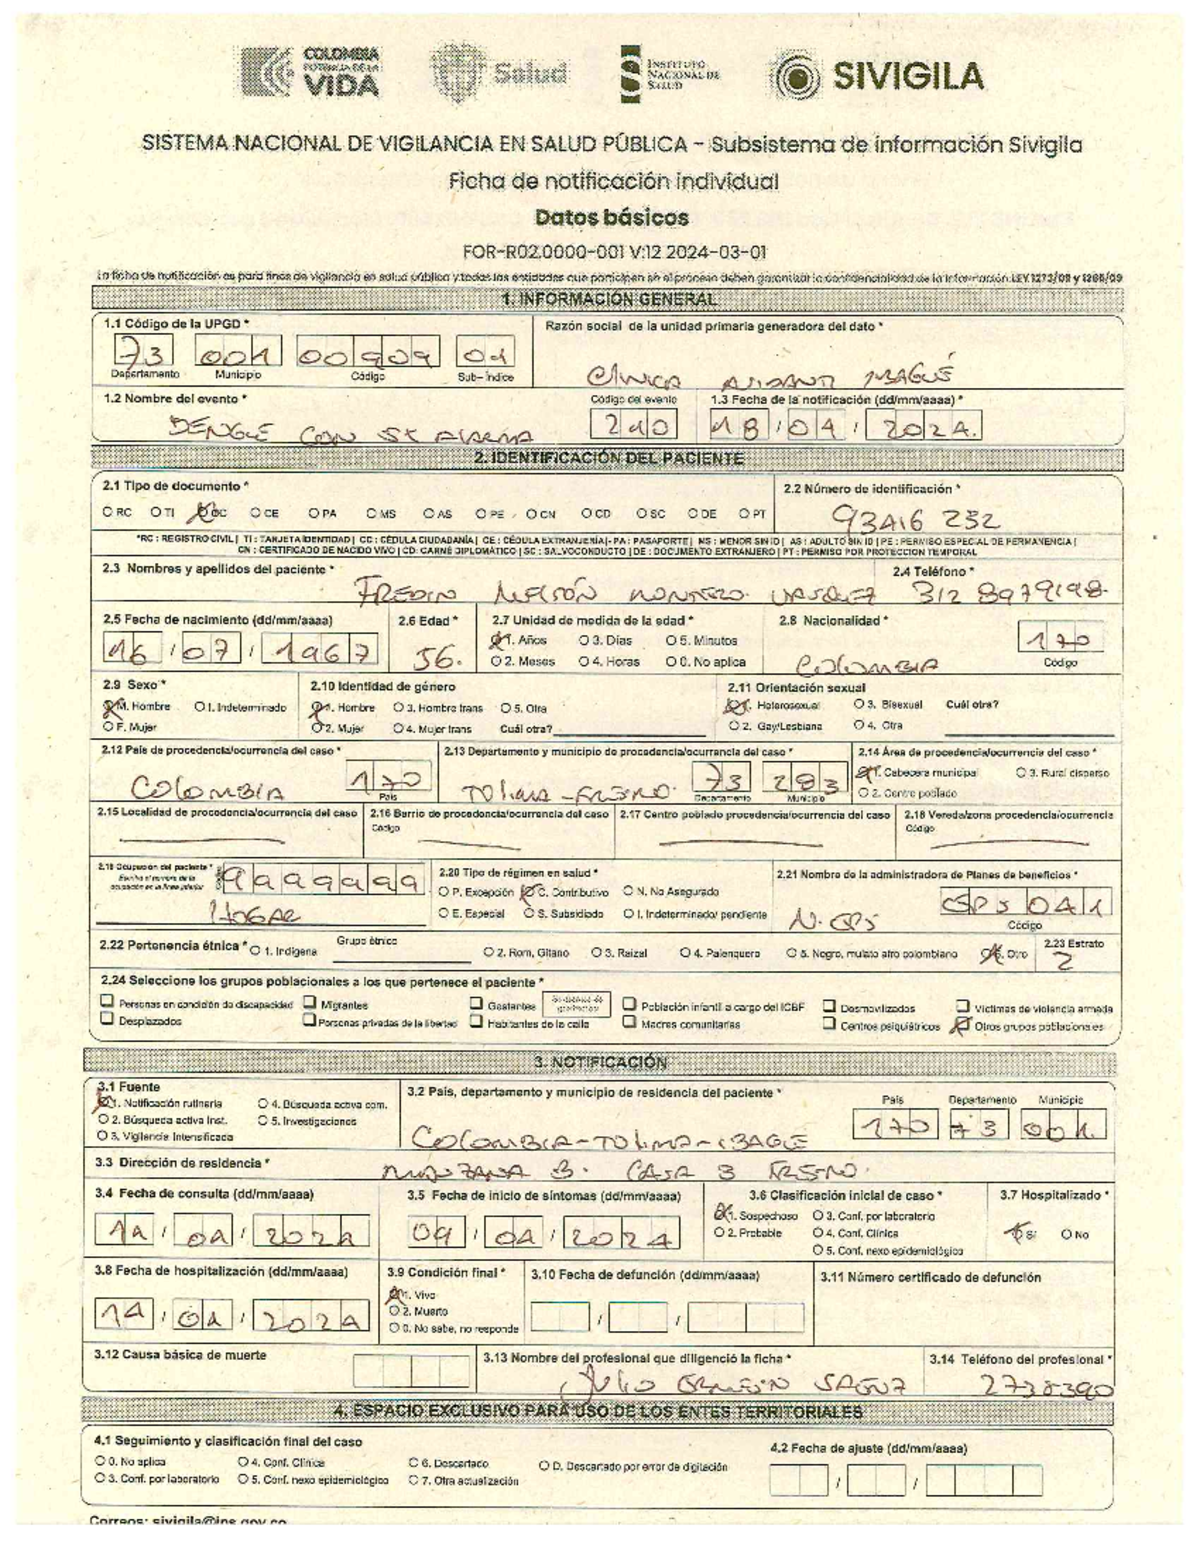 COLOMBIA
POTENCIA DE LA
VIDA
Salud
INSTITUTO
NACIONAL DE
SALUD
SIVIGILA
SISTEMA NACIONAL DE VIGILANCIA EN SALUD PÚBLICA - Subsistema de información Sivigila
Ficha de notificación individual
Datos básicos
FOR-R02.0000-001 V:12 2024-03-01
La ficha de notificación es para fines de vigilancia en salud pública y todas las entidades que participen en el proceso deben garantizar la confidencialidad de la información LEY 1273/09 y 1266/09
1. INFORMACIÓN GENERAL
1.1 Código de la UPGD * Razón social de la unidad primaria generadora del dato *
73 001 00909 01
Departamento Municipio Código Sub-índice
CLINICA AVIDANTI IBAGUÉ
1.2 Nombre del evento * Código del evento 1.3 Fecha de la notificación (dd/mm/aaaa) *
DENGUE CON SX ALARMA 210 18/04/2024
2. IDENTIFICACIÓN DEL PACIENTE
2.1 Tipo de documento * 2.2 Número de identificación *
RC TI CC CE PA MS AS PE CN CD SC DE PT 93416 232
*RC : REGISTRO CIVIL | TI : TARJETA IDENTIDAD | CC : CÉDULA CIUDADANÍA | CE : CÉDULA EXTRANJERÍA |- PA : PASAPORTE | MS : MENOR SIN ID | AS : ADULTO SIN ID | PE : PERMISO ESPECIAL DE PERMANENCIA |
CN : CERTIFICADO DE NACIDO VIVO | CD: CARNÉ DIPLOMÁTICO | SC : SALVOCONDUCTO | DE : DOCUMENTO EXTRANJERO | PT : PERMISO POR PROTECCIÓN TEMPORAL
2.3 Nombres y apellidos del paciente * 2.4 Teléfono *
FREDIN NELSÓN MONTERO VASQUEZ 312 8979198
2.5 Fecha de nacimiento (dd/mm/aaaa) 2.6 Edad * 2.7 Unidad de medida de la edad * 2.8 Nacionalidad *
16/07/1967 56. 1. Años 3. Días 5. Minutos 170
2. Meses 4. Horas 0. No aplica COLOMBIA Código
2.9 Sexo * 2.10 Identidad de género 2.11 Orientación sexual
M. Hombre I. Indeterminado 1. Hombre 3. Hombre trans 5. Otra 1. Heterosexual 3. Bisexual Cuál otra?
F. Mujer 2. Mujer 4. Mujer trans Cuál otra? 2. Gay/Lesbiana 4. Otra
2.12 País de procedencia/ocurrencia del caso * 2.13 Departamento y municipio de procedencia/ocurrencia del caso * 2.14 Área de procedencia/ocurrencia del caso *
COLOMBIA 170 TOLIMA - FRESNO. 73 283 1. Cabecera municipal 3. Rural disperso
País Departamento Municipio 2. Centro poblado
2.15 Localidad de procedencia/ocurrencia del caso 2.16 Barrio de procedencia/ocurrencia del caso 2.17 Centro poblado procedencia/ocurrencia del caso 2.18 Vereda/zona procedencia/ocurrencia
Código Código
2.19 Ocupación del paciente * Código 9999999 2.20 Tipo de régimen en salud * 2.21 Nombre de la administradora de Planes de beneficios *
Escriba el nombre de la ocupación en la línea inferior
P. Excepción C. Contributivo N. No Asegurado
HOGAR E. Especial S. Subsidiado I. Indeterminado/ pendiente N. EPS EPS041
Código
2.22 Pertenencia étnica * 1. Indígena Grupo étnico 2. Rom, Gitano 3. Raizal 4. Palenquero 5. Negro, mulato afro colombiano 6. Otro 2.23 Estrato 2
2.24 Seleccione los grupos poblacionales a los que pertenece el paciente *
Personas en condición de discapacidad Migrantes Gestantes Semanas de gestación Población infantil a cargo del ICBF Desmovilizados Víctimas de violencia armada
Desplazados Personas privadas de la libertad Habitantes de la calle Madres comunitarias Centros psiquiátricos Otros grupos poblacionales
3. NOTIFICACIÓN
3.1 Fuente 3.2 País, departamento y municipio de residencia del paciente * País Departamento Municipio
1. Notificación rutinaria 4. Búsqueda activa com.
2. Búsqueda activa Inst. 5. Investigaciones
3. Vigilancia Intensificada
COLOMBIA-TOLIMA-IBAGUE 170 73 001
3.3 Dirección de residencia * MANZANA B. CASA 3 FRESNO.
3.4 Fecha de consulta (dd/mm/aaaa) 3.5 Fecha de inicio de síntomas (dd/mm/aaaa) 3.6 Clasificación inicial de caso * 3.7 Hospitalizado *
14/04/2024 09/04/2024 1. Sospechoso 3. Conf. por laboratorio Si No
2. Probable 4. Conf. Clínica
5. Conf. nexo epidemiológico
3.8 Fecha de hospitalización (dd/mm/aaaa) 3.9 Condición final * 3.10 Fecha de defunción (dd/mm/aaaa) 3.11 Número certificado de defunción
14/04/2024 1. Vivo
2. Muerto
0. No sabe, no responde
3.12 Causa básica de muerte 3.13 Nombre del profesional que diligenció la ficha * 3.14 Teléfono del profesional *
JULIO 2738390
4. ESPACIO EXCLUSIVO PARA USO DE LOS ENTES TERRITORIALES
4.1 Seguimiento y clasificación final del caso 4.2 Fecha de ajuste (dd/mm/aaaa)
0. No aplica 4. Conf. Clínica 6. Descartado D. Descartado por error de digitación
3. Conf. por laboratorio 5. Conf. nexo epidemiológico 7. Otra actualización
Correos: sivigila@ins.gov.co